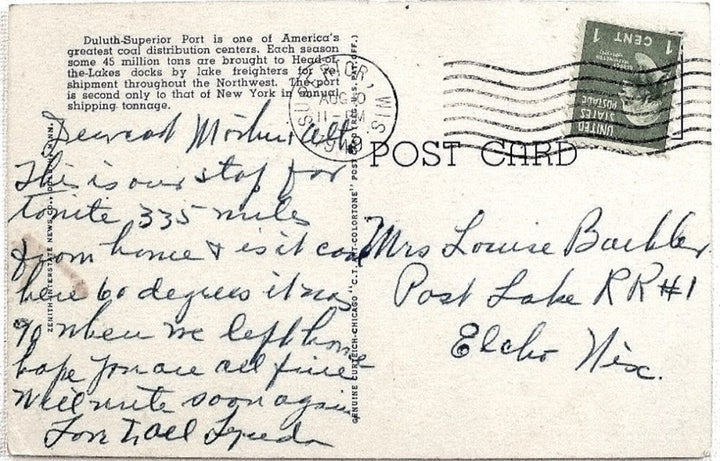 Duluth-Superior Port is one of America's
greatest coal distribution centers. Each season
some 45 million tons are brought to Head-of-
the-Lakes docks by lake freighters for re-
shipment throughout the Northwest. The port
is second only to that of New York in annual
shipping tonnage.
SUPERIOR, WIS
AUG 10
11 PM
1 CENT 1
UNITED
STATES
POSTAGE
POST CARD
Dearest Mother & all
This is our stop for
tonite 335 miles
from home & is it cool
here 60 degrees it was
90 when we left home
hope you are all fine
will write soon again
Love to all
Mrs Louise
Post Lake RR#1
Elcho Wis.
ZENITH INTERSTATE NEWS CO., DULUTH, MINN.
GENUINE CURTEICH-CHICAGO "C.T. ART-COLORTONE" POST CARD (REG. U.S. PAT. OFF.)